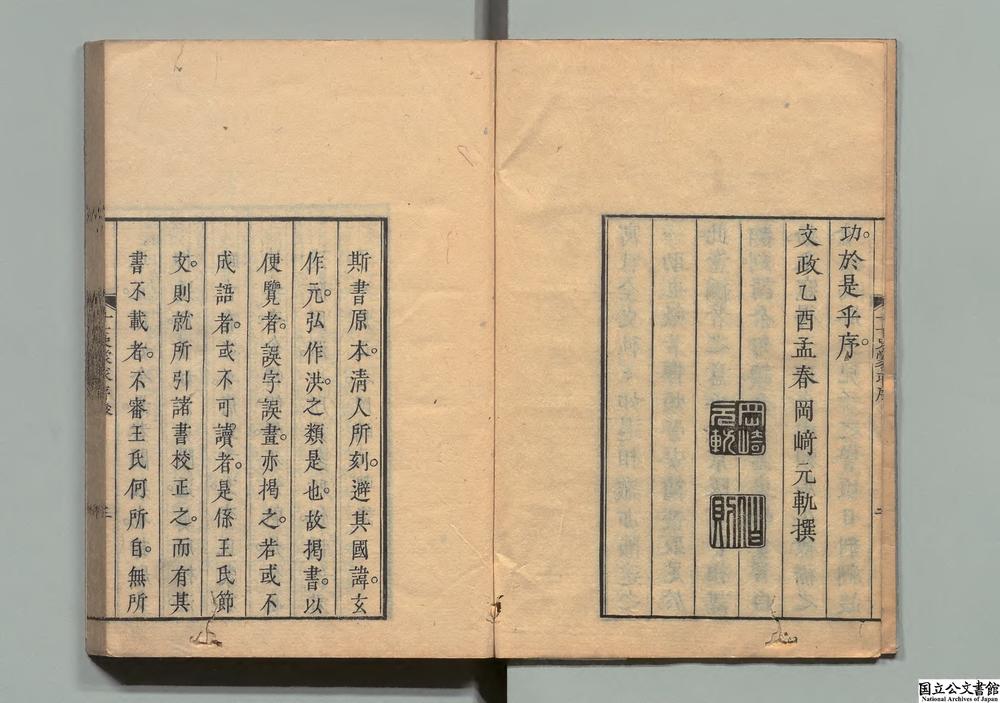 功於是乎序。
文政乙酉孟春岡﨑元軌撰
岡﨑元軌
斯書原本。淸人所刻。避其國諱。玄
作元。弘作洪。之類是也。故揭書。以
便覽者。誤字誤畫。亦揭之。若或不
成語者。或不可讀者。是係王氏節
文。則就所引諸書校正之。而有其
書不載者。不審王氏何所自。無所
国立公文書館
National Archives of Japan